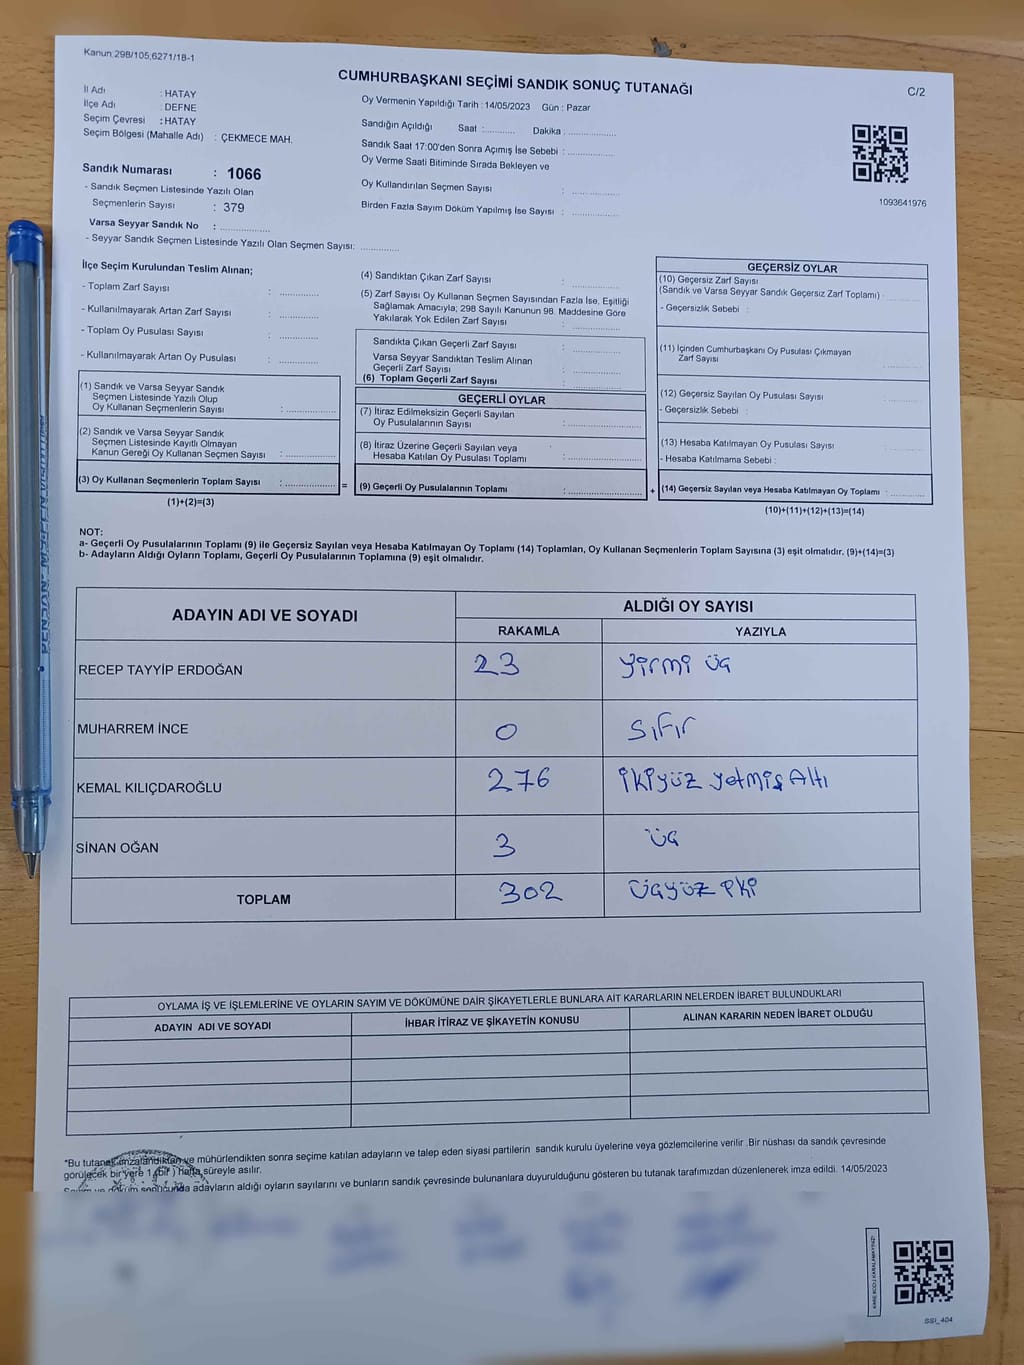 Kanun:298/105,6271/18-1
CUMHURBAŞKANI SEÇİMİ SANDIK SONUÇ TUTANAĞI
C/2
İl Adı : HATAY
İlçe Adı : DEFNE
Seçim Çevresi : HATAY
Seçim Bölgesi (Mahalle Adı) : ÇEKMECE MAH.
Oy Vermenin Yapıldığı Tarih : 14/05/2023 Gün : Pazar
Sandığın Açıldığı Saat :........... Dakika :................
Sandık Saat 17:00'den Sonra Açımış İse Sebebi :................
Oy Verme Saati Bitiminde Sırada Bekleyen ve
Oy Kullandırılan Seçmen Sayısı : ................
Birden Fazla Sayım Döküm Yapılmış İse Sayısı : ................
1093641976
Sandık Numarası : 1066
- Sandık Seçmen Listesinde Yazılı Olan
Seçmenlerin Sayısı : 379
Varsa Seyyar Sandık No : ................
- Seyyar Sandık Seçmen Listesinde Yazılı Olan Seçmen Sayısı: ............
İlçe Seçim Kurulundan Teslim Alınan;
- Toplam Zarf Sayısı : ............
- Kullanılmayarak Artan Zarf Sayısı : ............
- Toplam Oy Pusulası Sayısı : ............
- Kullanılmayarak Artan Oy Pusulası : ............
(1) Sandık ve Varsa Seyyar Sandık
Seçmen Listesinde Yazılı Olup
Oy Kullanan Seçmenlerin Sayısı : ................
(2) Sandık ve Varsa Seyyar Sandık
Seçmen Listesinde Kayıtlı Olmayan
Kanun Gereği Oy Kullanan Seçmen Sayısı : ................
(3) Oy Kullanan Seçmenlerin Toplam Sayısı : ................ =
(1)+(2)=(3)
(4) Sandıktan Çıkan Zarf Sayısı : ................
(5) Zarf Sayısı Oy Kullanan Seçmen Sayısından Fazla İse, Eşitliği
Sağlamak Amacıyla; 298 Sayılı Kanunun 98. Maddesine Göre
Yakılarak Yok Edilen Zarf Sayısı : ................
Sandıkta Çıkan Geçerli Zarf Sayısı : ................
Varsa Seyyar Sandıktan Teslim Alınan
Geçerli Zarf Sayısı : ................
(6) Toplam Geçerli Zarf Sayısı : ................
GEÇERLİ OYLAR
(7) İtiraz Edilmeksizin Geçerli Sayılan
Oy Pusulalarının Sayısı : ................
(8) İtiraz Üzerine Geçerli Sayılan veya
Hesaba Katılan Oy Pusulası Toplamı : ................
(9) Geçerli Oy Pusulalarının Toplamı : ................ +
GEÇERSİZ OYLAR
(10) Geçersiz Zarf Sayısı
(Sandık ve Varsa Seyyar Sandık Geçersiz Zarf Toplamı) : ............
- Geçersizlik Sebebi :
(11) İçinden Cumhurbaşkanı Oy Pusulası Çıkmayan
Zarf Sayısı : ............
(12) Geçersiz Sayılan Oy Pusulası Sayısı : ............
- Geçersizlik Sebebi :
(13) Hesaba Katılmayan Oy Pusulası Sayısı : ............
- Hesaba Katılmama Sebebi :
(14) Geçersiz Sayılan veya Hesaba Katılmayan Oy Toplamı : ............
(10)+(11)+(12)+(13)=(14)
NOT:
a- Geçerli Oy Pusulalarının Toplamı (9) ile Geçersiz Sayılan veya Hesaba Katılmayan Oy Toplamı (14) Toplamları, Oy Kullanan Seçmenlerin Toplam Sayısına (3) eşit olmalıdır. (9)+(14)=(3)
b- Adayların Aldığı Oyların Toplamı, Geçerli Oy Pusulalarının Toplamına (9) eşit olmalıdır.
ADAYIN ADI VE SOYADI ALDIĞI OY SAYISI
RAKAMLA YAZIYLA
RECEP TAYYİP ERDOĞAN 23 yirmi üç
MUHARREM İNCE 0 sıfır
KEMAL KILIÇDAROĞLU 276 ikiyüz yetmiş Altı
SİNAN OĞAN 3 üç
TOPLAM 302 üçyüz iki
OYLAMA İŞ VE İŞLEMLERİNE VE OYLARIN SAYIM VE DÖKÜMÜNE DAİR ŞİKAYETLERLE BUNLARA AİT KARARLARIN NELERDEN İBARET BULUNDUKLARI
ADAYIN ADI VE SOYADI İHBAR İTİRAZ VE ŞİKAYETİN KONUSU ALINAN KARARIN NEDEN İBARET OLDUĞU
*Bu tutanak imzalandıktan ve mühürlendikten sonra seçime katılan adayların ve talep eden siyasi partilerin sandık kurulu üyelerine veya gözlemcilerine verilir .Bir nüshası da sandık çevresinde
görülecek bir yere 1 (bir ) hafta süreyle asılır.
adayların aldığı oyların sayılarını ve bunların sandık çevresinde bulunanlara duyurulduğunu gösteren bu tutanak tarafımızdan düzenlenerek imza edildi. 14/05/2023
KARE KODU KARALAMAYINIZ!
SSI_404